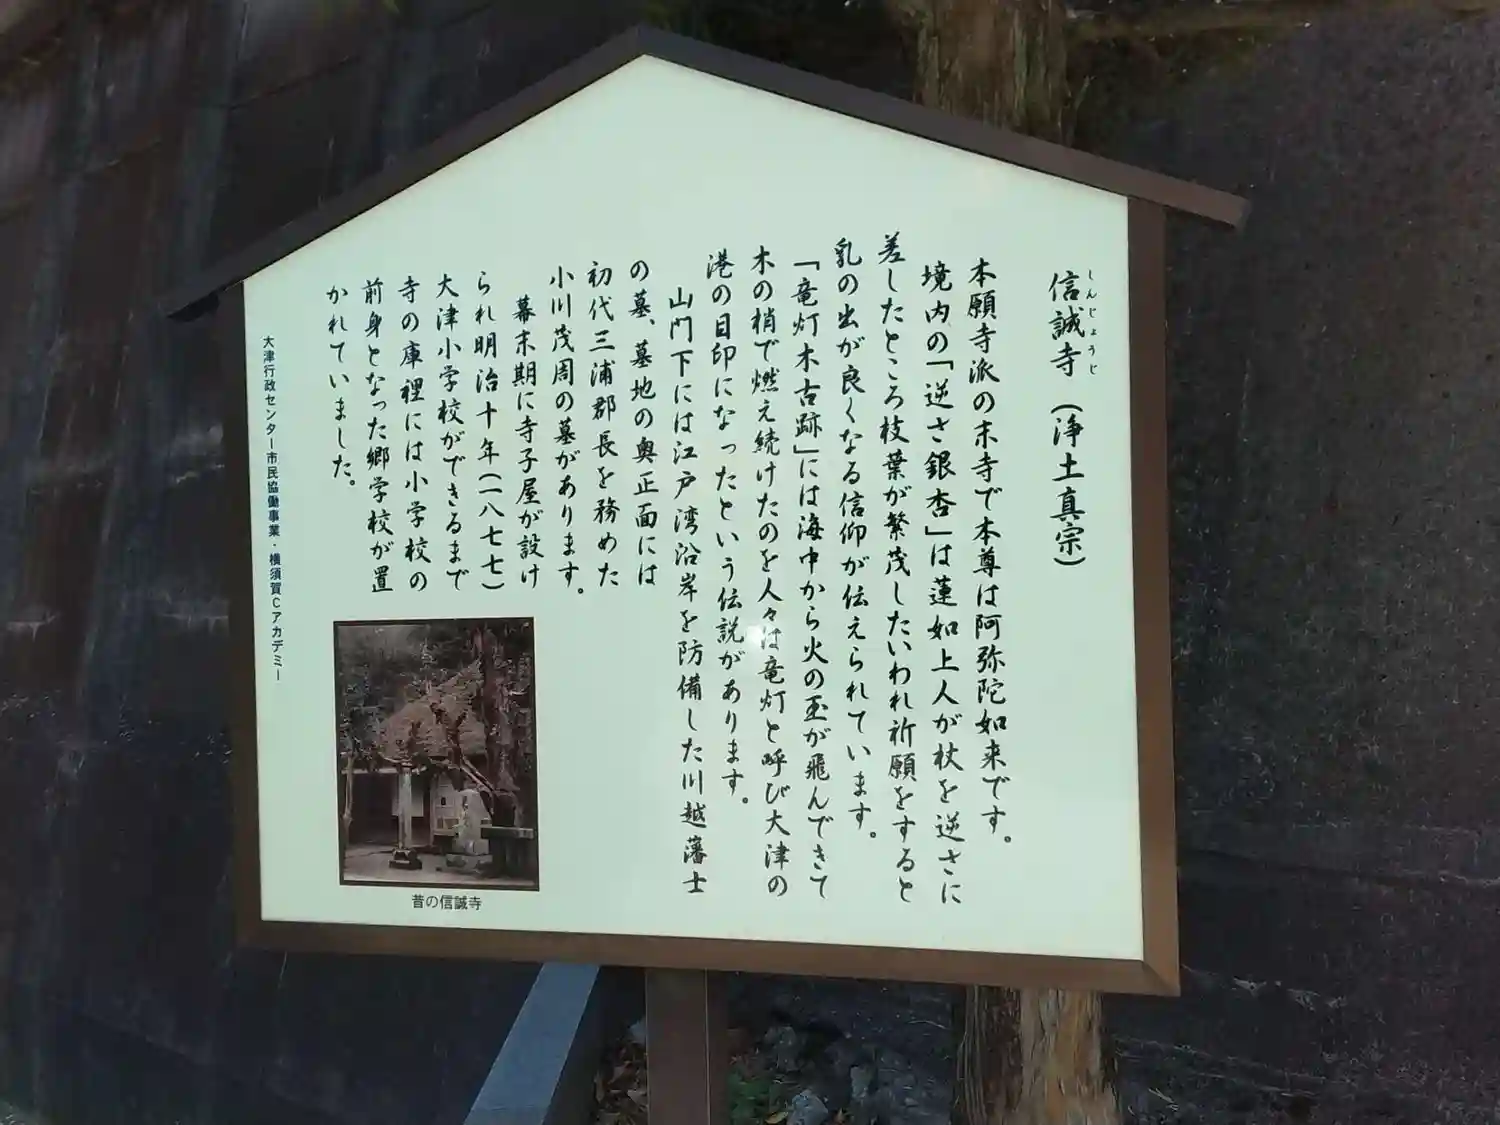 信誠寺（浄土真宗）
しんじょうじ
本願寺派の末寺で本尊は阿弥陀如来です。
境内の「逆さ銀杏」は蓮如上人が杖を逆さに
差したところ枝葉が繁茂したいわれ祈願をすると
乳の出が良くなる信仰が伝えられています。
「竜灯木古跡」には海中から火の玉が飛んできて
木の梢で燃え続けたのを人々は竜灯と呼び大津の
港の目印になったという伝説があります。
山門下には江戸湾沿岸を防備した川越藩士
の墓、墓地の奥正面には
初代三浦郡長を務めた
小川茂周の墓があります。
幕末期に寺子屋が設け
られ明治十年（一八七七）
大津小学校ができるまで
寺の庫裡には小学校の
前身となった郷学校が置
かれていました。
大津行政センター市民協働事業・横須賀Cアカデミー
昔の信誠寺